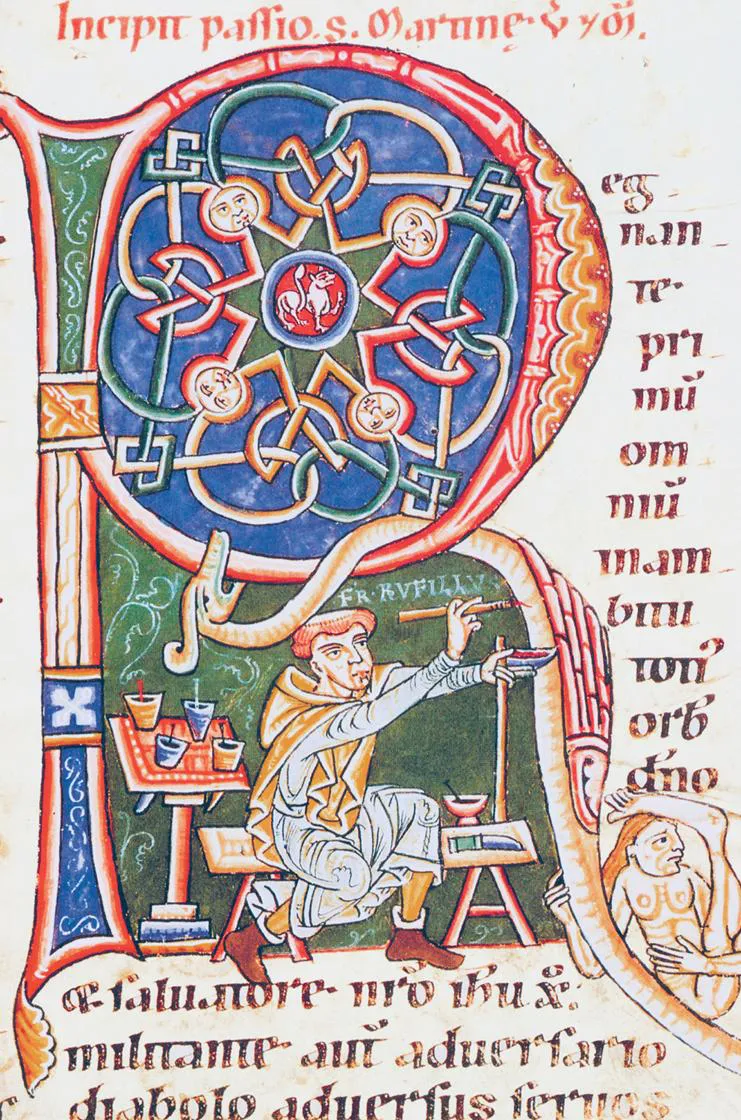 Incipit passio. s. Martinę. v̄ y om̄.
R
eg
nan
te
pri
mū
om
niū
mam
biti
ton᷒
orb
dn̄o
FR·RVFILLVS
& saluatore nr̄o ih̄u x̄:
militante aut̄ aduersario
diabolo aduersus seruos